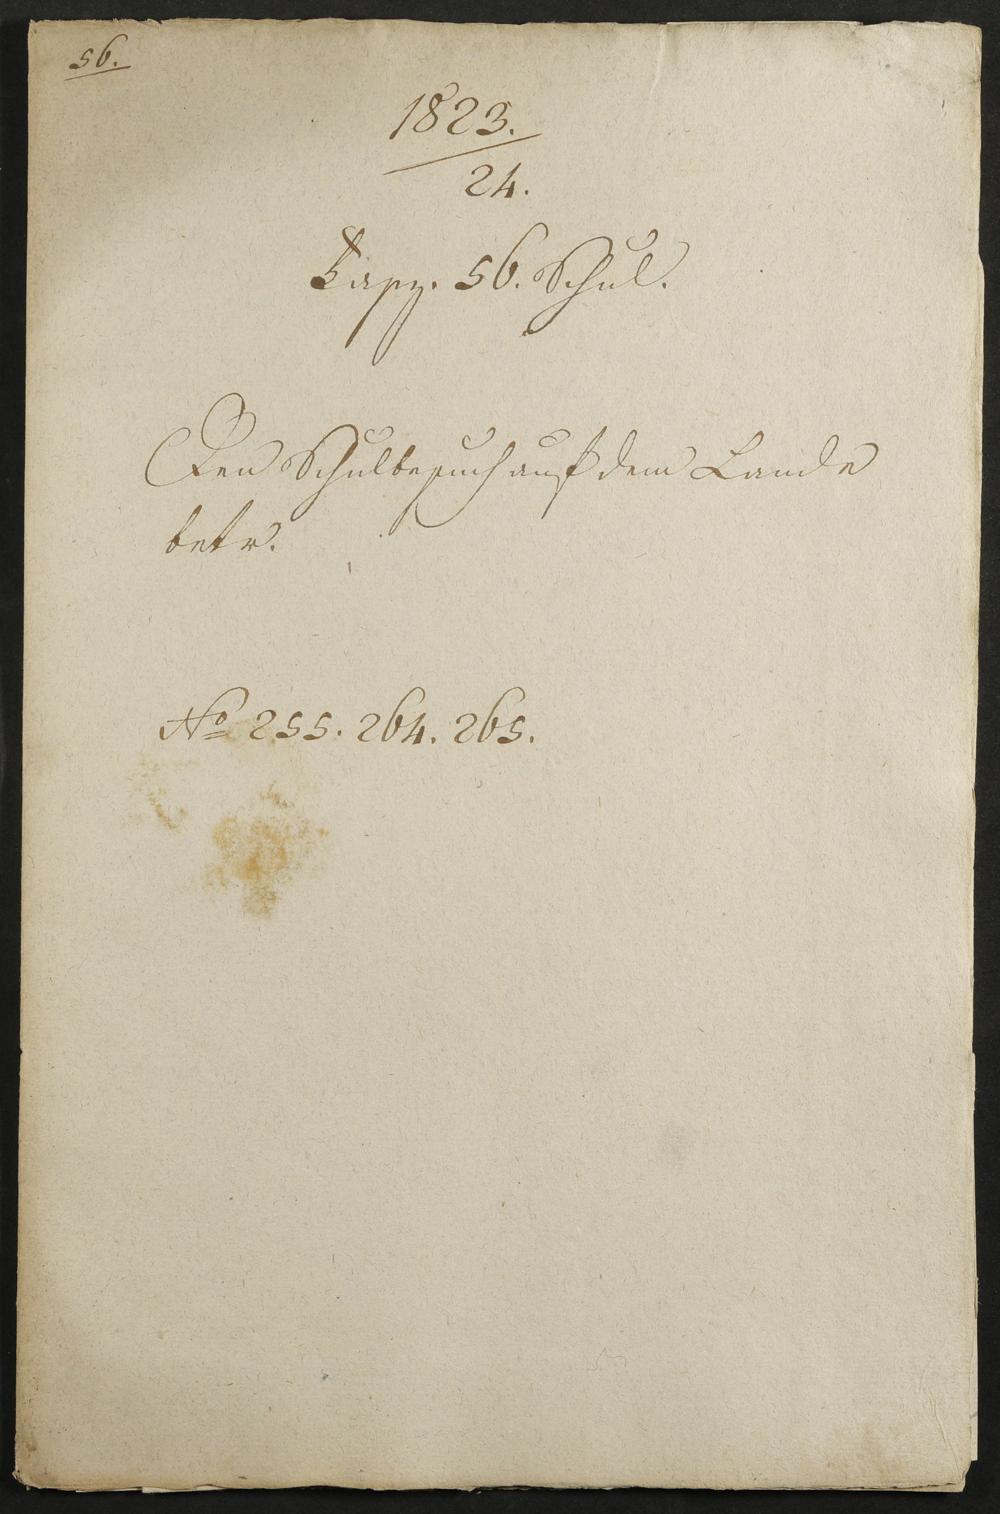 56.
1823.
24.
Capp. 56. Schul.
Den Schulbesuch auf dem Lande
betr.
No 255. 264. 265.